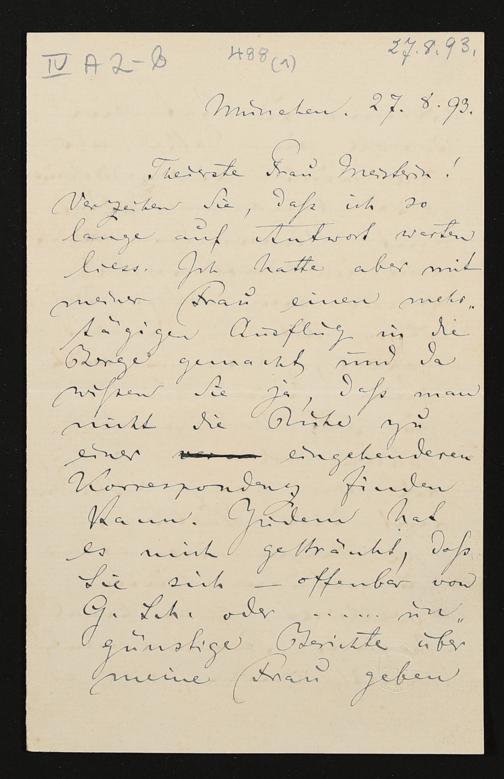 IV A 2-b
488 (1)
27.8.93.
München. 27. 8. 93.
Theuerste Frau Meisterin!
Verzeihen Sie, daß ich so
lange auf Antwort warten
liess. Ich hatte aber mit
meiner Frau einen mehr„
tägigen Ausflug in die
Berge gemacht und da
wißen Sie ja, daß man
nicht die Ruhe zu
einer eingehenderen
Korrespondenz finden
kann. Zudem hat
es mich gekränkt, daß
Sie sich – offenbar von
G. Sch. oder ...... un„
günstige Berichte über
meine Frau geben